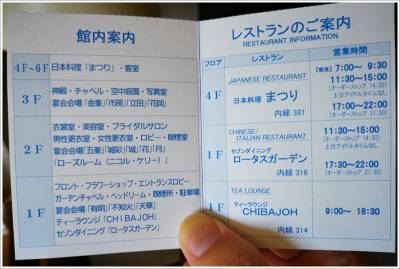 館内案内
4F~6F 日本料理「まつり」・客室
3F
神殿・チャペル・空中庭園・写真室
宴会会場「金峯」「市房」「立田」「花岡」
2F
衣裳室・美容室・ブライダルサロン
男性更衣室・女性更衣室・ロビー・喫煙室
宴会会場「五峯」「城彩」「城」「花」「月」
「ローズルーム(ニコル・ケリー)」
1F
フロント・フラワーショップ・エントランスロビー
ガーデンチャペル・ベッドリーム・喫煙所・駐車場
宴会会場「有明」「不知火」「天草」
ティーラウンジ「CHIBAJOH」
セゾンダイニング「ロータスガーデン」
レストランのご案内
RESTAURANT INFORMATION
フロア レストラン 営業時間
4F
JAPANESE RESTAURANT
日本料理 まつり
内線 381
[朝食] 7:00~ 9:30
11:30~15:00
(オーダーストップ 14:30)
土日アイドルタイムなし
17:00~22:00
(オーダーストップ 21:30)
1F
CHINESE/
ITALIAN RESTAURANT
セゾンダイニング
ロータスガーデン
内線 316
11:30~15:00
(オーダーストップ
土日アイドルタイムなし
17:30~22:00
(オーダーストップ 21:30)
1F
TEA LOUNGE
ティーラウンジ
CHIBAJOH
内線 314
9:00~ 18:30